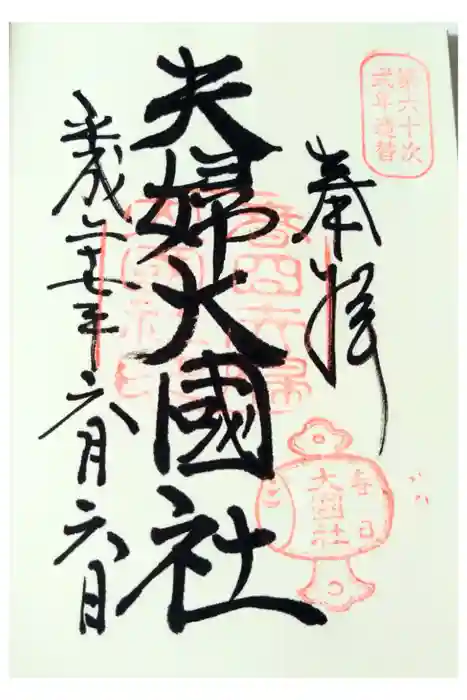 第六十次
式年造替
奉拝
夫婦大國社
春日
大國社
平成二十七年六月六日